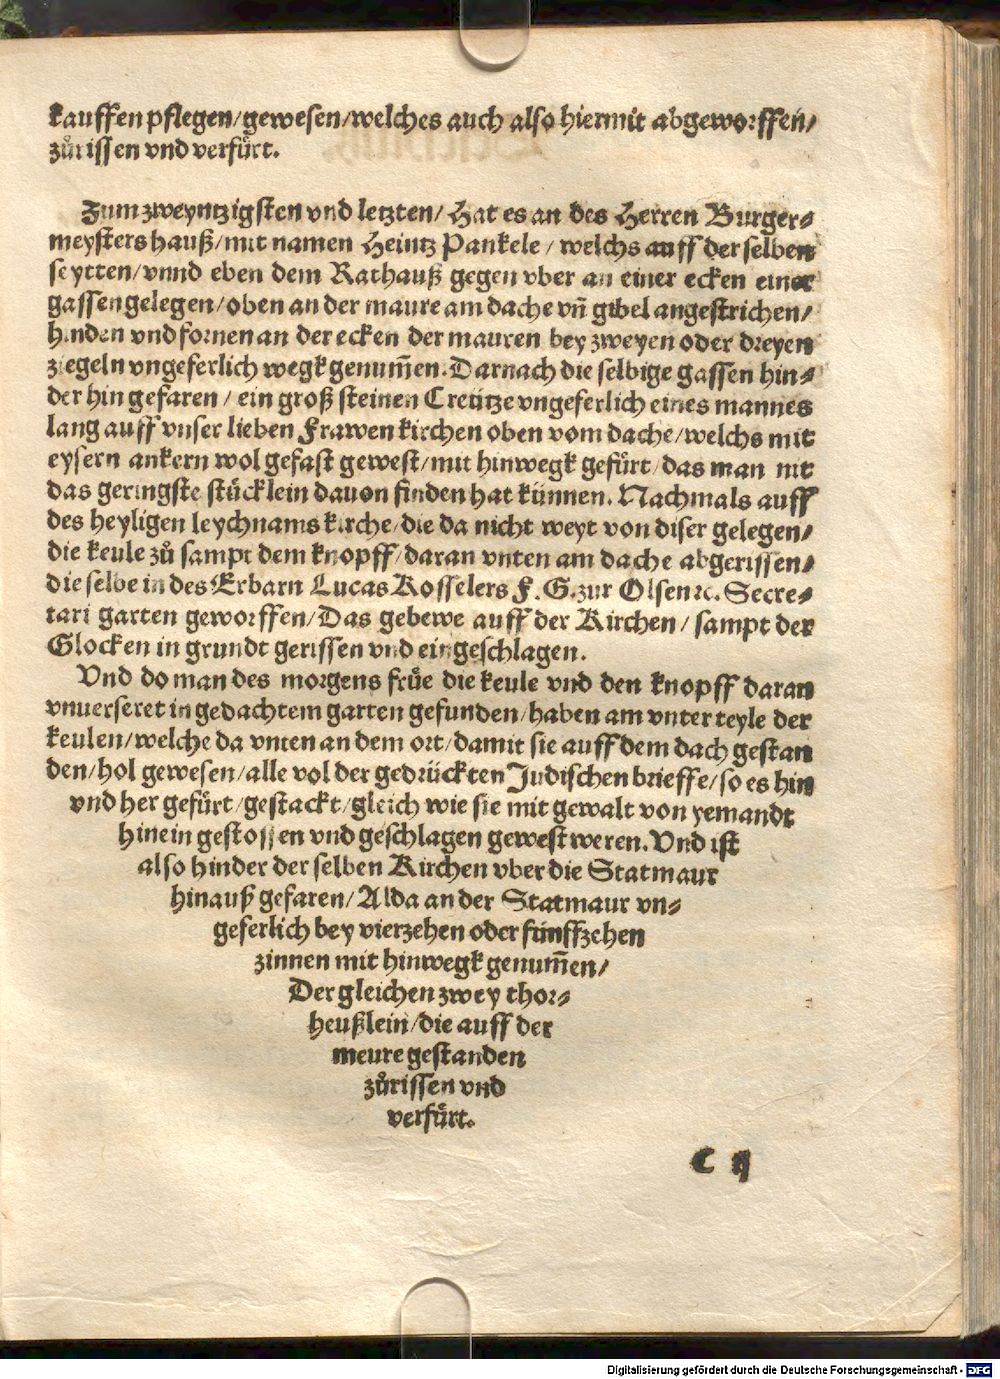 kauffen pflegen/gewesen/welches auch also hiermit abgeworffen/
zůrissen vnd verfůrt.
Zum zweyntzigsten vnd letzten/ Hat es an des Herren Burger⸗
meysters hauß/mit namen Heintz Pankele/ welchs auff der selben
seytten/vnnd eben dem Rathauß gegen vber an einer ecken einer
gassen gelegen/oben an der maure am dache vñ gibel angestrichen/
hinden vnd fornen an der ecken der mauren bey zweyen oder dreyen
ziegeln vngeferlich wegk genum̃en. Darnach die selbige gassen hin⸗
der hin gefaren/ ein groß steinen Creütze vngeferlich eines mannes
lang auff vnser lieben Frawen kirchen oben vom dache/welchs mit
eysern ankern wol gefast gewest/mit hinwegk gefůrt/das man nit
das geringste stůcklein dauon finden hat künnen. Nachmals auff
des heyligen leychnams kirche/die da nicht weyt von diser gelegen/
die keule zů sampt dem knopff/daran vnten am dache abgerissen/
die selbe in des Erbarn Lucas Rosselers F. G. zur Olsen ꝛc. Secre⸗
tari garten geworffen/Das gebewe auff der Kirchen/ sampt der
Glocken in grundt gerissen vnd eingeschlagen.
Vnd do man des morgens frůe die keule vnd den knopff daran
vnuerseret in gedachtem garten gefunden/haben am vnter teyle der
keulen/welche da vnten an dem ort/damit sie auff dem dach gestan
den/hol gewesen/alle vol der gedrückten Judischen brieffe/so es hin
vnd her gefůrt/gestackt/gleich wie sie mit gewalt von yemandt
hinein gestossen vnd geschlagen gewest weren. Vnd ist
also hinder der selben Kirchen vber die Statmaur
hinauß gefaren/ Alda an der Statmaur vn⸗
geferlich bey vierzehen oder fünffzehen
zinnen mit hinwegk genum̃en/
Der gleichen zwey thor⸗
heußlein/die auff der
meure gestanden
zůrissen vnd
verfůrt.
C ij
Digitalisierung gefördert durch die Deutsche Forschungsgemeinschaft - DFG